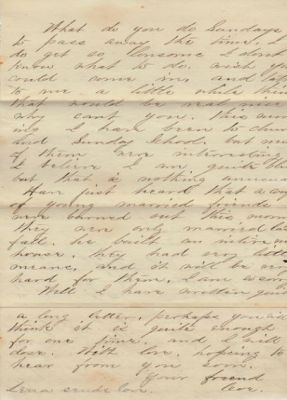 What do you do Sundays
to pass away the time, I
do get so lonesome I dont
know what to do. wish you
could come in and talk
to me a little while
that would be real nice
why cant you. This morn
ing I have been to church
and Sunday School, but
of them were interesting
I believe I am quite
but that is nothing unusual
Have just heard that a
of young married friends
were burned out this morn
They were only married last
fall. he built an
house, they had very little
means, and it will be very
hard for them, I am
Well I have written quite
a long letter, perhaps you will
think it is quite enough
for one time, and I will
close. With love, hopeing to
hear from you soon.
Your friend
sends love.